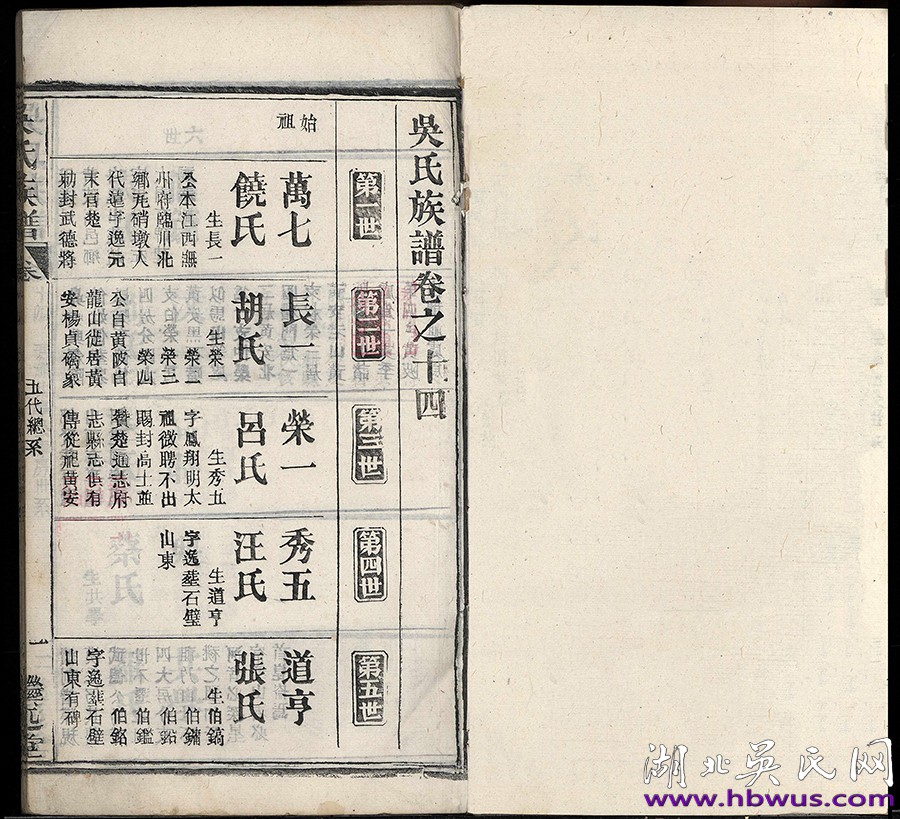 吳氏族譜卷之十四
始祖
第一世
萬七
饒氏
生長一
公本江西撫
州府臨川北
鄉瓦硝墩人
代遠字逸元
末官楚
勅封武德將
第二世
長一
胡氏
生榮一
榮二
榮三
榮四
公自黃陂自
龍山徙居黃
安楊貞
第三世
榮一
呂氏
生秀五
字鳳翔明太
祖徵聘不出
賜封高士並
贊楚通志府
志縣志俱有
傳從祀黃安
第四世
秀五
汪氏
生道亨
字逸塟石壁
山東
第五世
道亨
張氏
生伯鎬
伯鏞
伯鉛
伯鑑
伯銘
字逸塟石壁
山東有碑
吳氏族譜
卷
五代總系
一
湖北吴氏网
www.hbwus.com